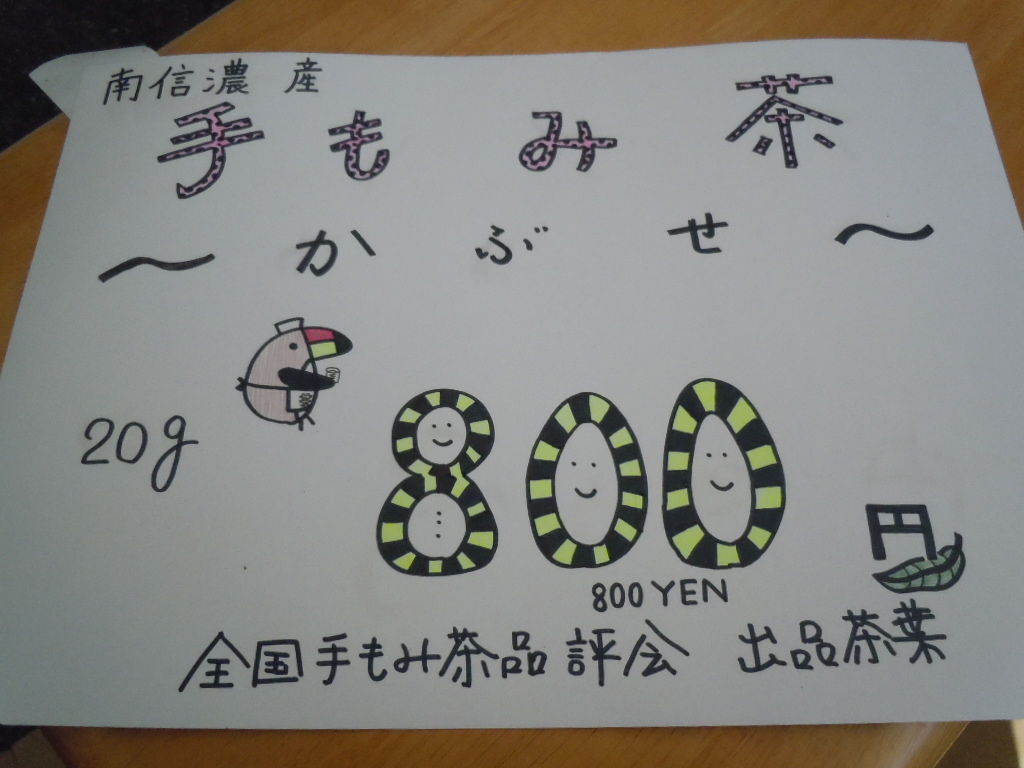 南信濃 産
手もみ茶
～かぶせ～
20g
800円
800 YEN
全国手もみ茶品評会 出品茶葉